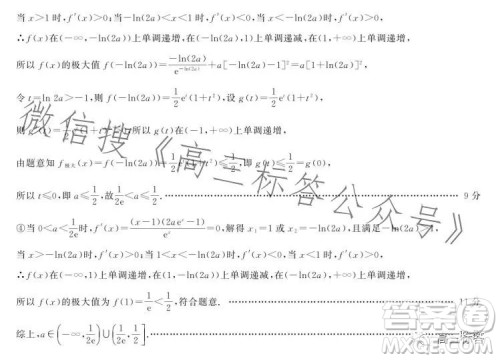 当 x>1 时, f′(x)>0; 当 -ln(2a)<x<1 时, f′(x)<0, 当 x<-ln(2a) 时, f′(x)>0,
∴f(x)在(-∞,-ln(2a))上单调递增, 在(-ln(2a),1)上单调递减, 在(1,+∞)上单调递增,
所以 f(x)的极大值 f(-ln(2a))=\frac{-ln(2a)}{e^{-ln(2a)}}+a[-ln(2a)-1]²=a[1+ln²(2a)].
令 t=ln 2a>-1, 则 f(-ln(2a))=\frac{1}{2}e^t(1+t²), 设 g(t)=\frac{1}{2}e^t(1+t²),
则 g′(t)=\frac{1}{2}e^t(1+t)² 所以 g(t)在(-1,+∞)上单调递增,
由题意知 f_{极大}(x)=f(-ln(2a))=\frac{1}{2}e^t(1+t²)≤\frac{1}{2}, 即 g(t)≤\frac{1}{2}=g(0),
所以 t≤0, 即 a≤\frac{1}{2}, 故 \frac{1}{2e}<a≤\frac{1}{2}. 9 分
④当 0<a<\frac{1}{2e} 时, f′(x)=\frac{(x-1)(2ae^x-1)}{e^x}=0, 解得 x₁=1 或 x₂=-ln(2a), 且-ln(2a)>1,
当 x>-ln(2a)时, f′(x)>0; 当 1<x<-ln(2a)时, f′(x)<0, 当 x<1 时, f′(x)>0,
∴f(x)在(-∞,1)上单调递增, 在(1,-ln(2a))上单调递减, 在(-ln(2a),+∞)上单调递增,
所以 f(x)的极大值为 f(1)=\frac{1}{e}<\frac{1}{2}, 符合题意. 11 分
综上, a∈(-∞,\frac{1}{2e}]∪[\frac{1}{2e},\frac{1}{2}].
微信搜《高三标答公众号》
答案圈